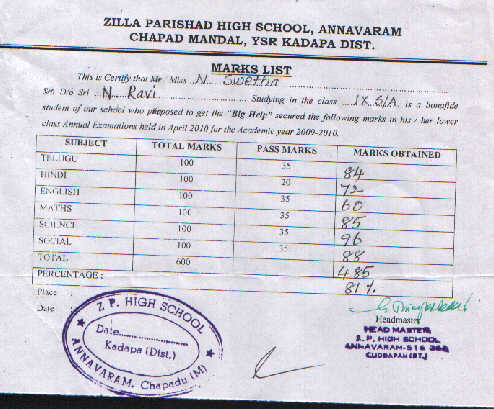 ZILLA PARISHAD HIGH SCHOOL, ANNAVARAM
CHAPAD MANDAL, YSR KADAPA DIST.
MARKS LIST
This is Certify that Mr Miss N. Swetha
S/o. D/o Sri N. Ravi Studying in the class IX C/A is a bonafide
student of our school who proposed to get the "Big Help" secured the following marks in his / her lower
class Annual Examations held in April 2010 for the Academic year 2009-2010.
SUBJECT TOTAL MARKS PASS MARKS MARKS OBTAINED
TELUGU 100 35 84
HINDI 100 20 72
ENGLISH 100 35 60
MATHS 100 35 85
SCIENCE 100 35 96
SOCIAL 100 35 88
TOTAL 600 485
PERCENTAGE : 81 %
Place :
Date
Z. P. HIGH SCHOOL
Date
Kadapa (Dist.)
ANNAVARAM, Chapadu (M)
Headmaster
HEAD MASTER
Z. P. HIGH SCHOOL
ANNAVARAM-516 355
CUDDAPAH (DT.)